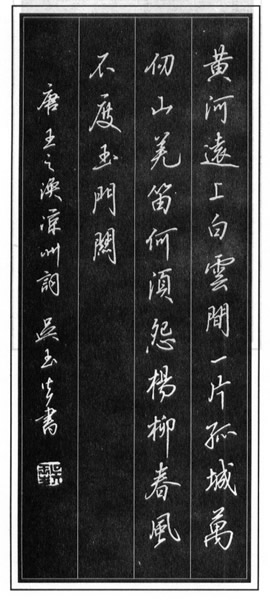 黃河遠上白雲間一片孤城萬
仞山羌笛何須怨楊柳春風
不度玉門關
唐王之渙涼州詞 吳玉生書